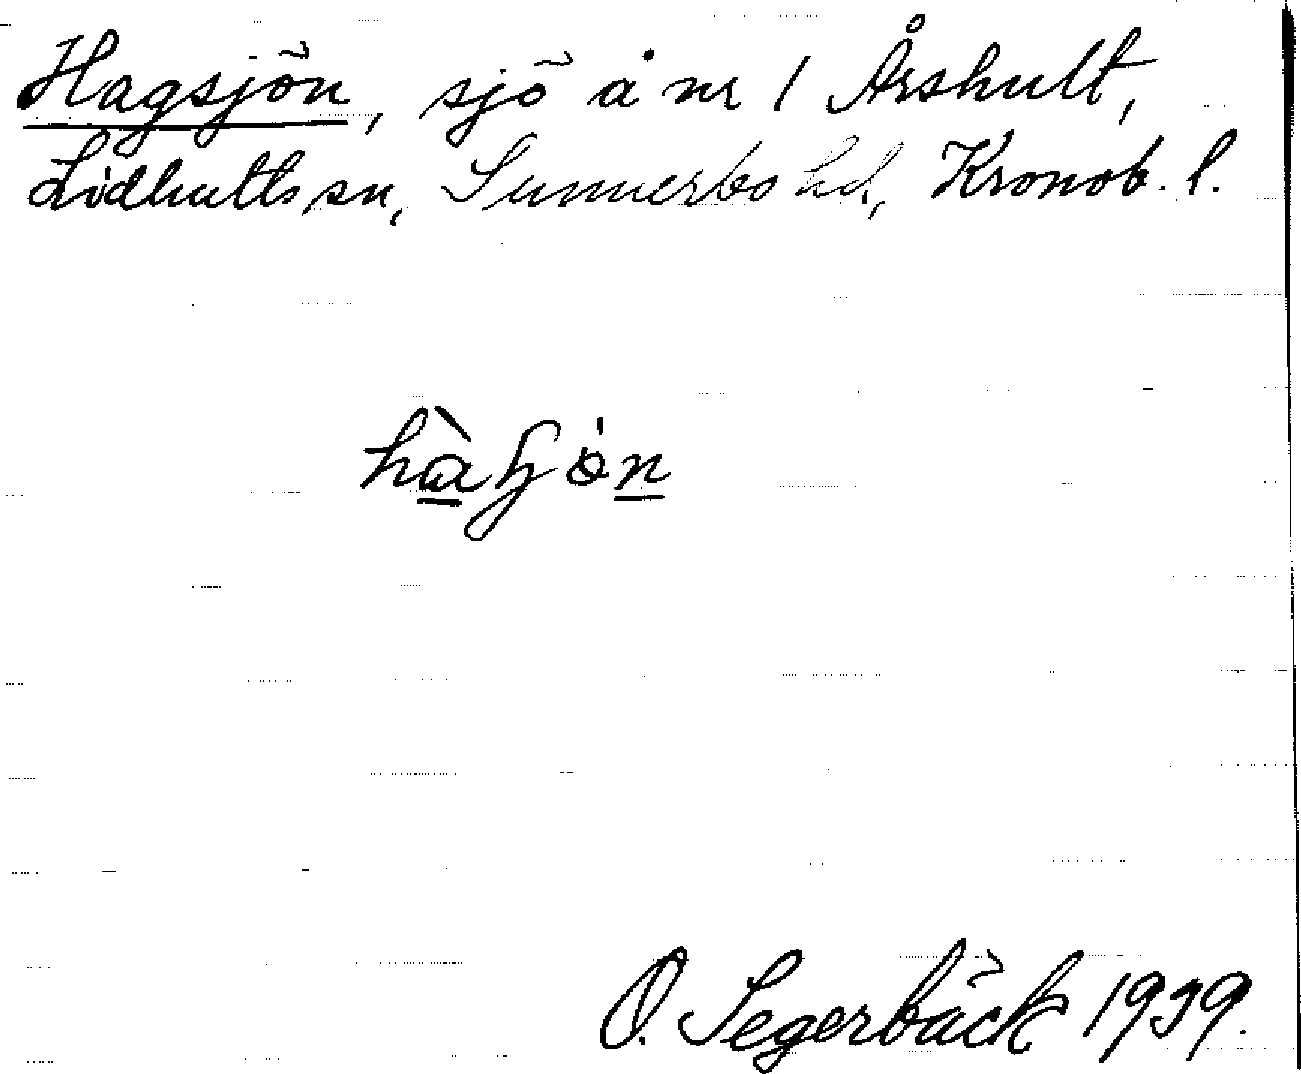 Hagsjön, sjö å nr 1 Årshult,
Lidhults sn, Sunnerbo hd, Kronob. l.
O. Segerbäck 1939.